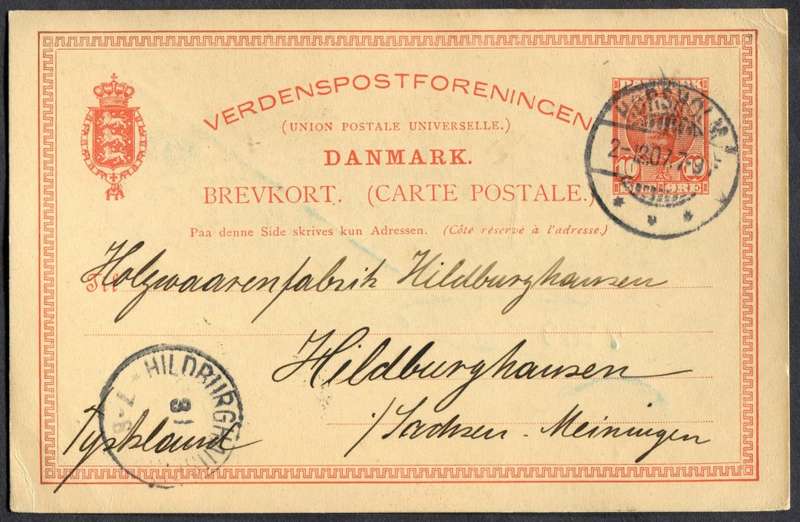 VERDENSPOSTFORENINGEN
(UNION POSTALE UNIVERSELLE.)
DANMARK.
BREVKORT. (CARTE POSTALE.)
Paa denne Side skrives kun Adressen. (Côté réservé à l'adresse.)
DANMARK
10 10
ØRE
HØRSHOLM
2-12.07.7-9
Til
Holzwaarenfabrik Hildburghausen
Hildburghausen
i/Sachsen-Meiningen
Tyskland
HILDBURGHAUSEN